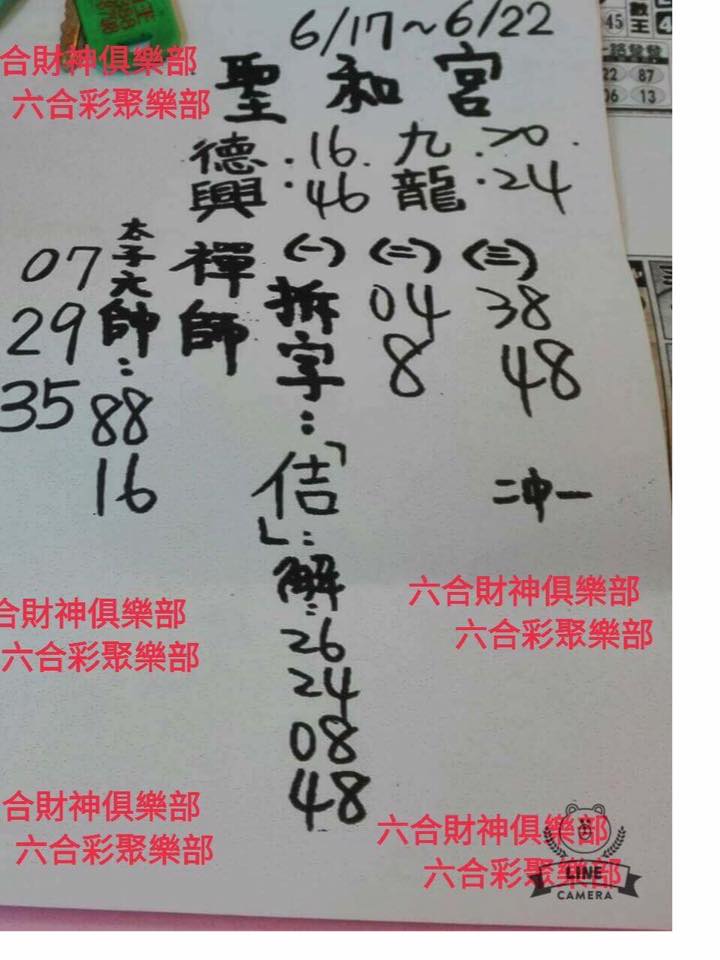 6/17~6/22
聖和宮
德興 .16. .46
九龍 .20. .24
禪師
(一)拆字:「佶」:解:
26
24
08
48
(二)
04
8
(三)
38
48
二中一
太子元帥:
88
16
07
29
35
45
數王
22 87
06 13
合財神俱樂部
六合彩聚樂部
六合財神俱樂部
六合彩聚樂部
合財神俱樂部
六合彩聚樂部
合財神俱樂部
六合彩聚樂部
六合財神俱樂部
六合彩聚樂部
LINE
CAMERA